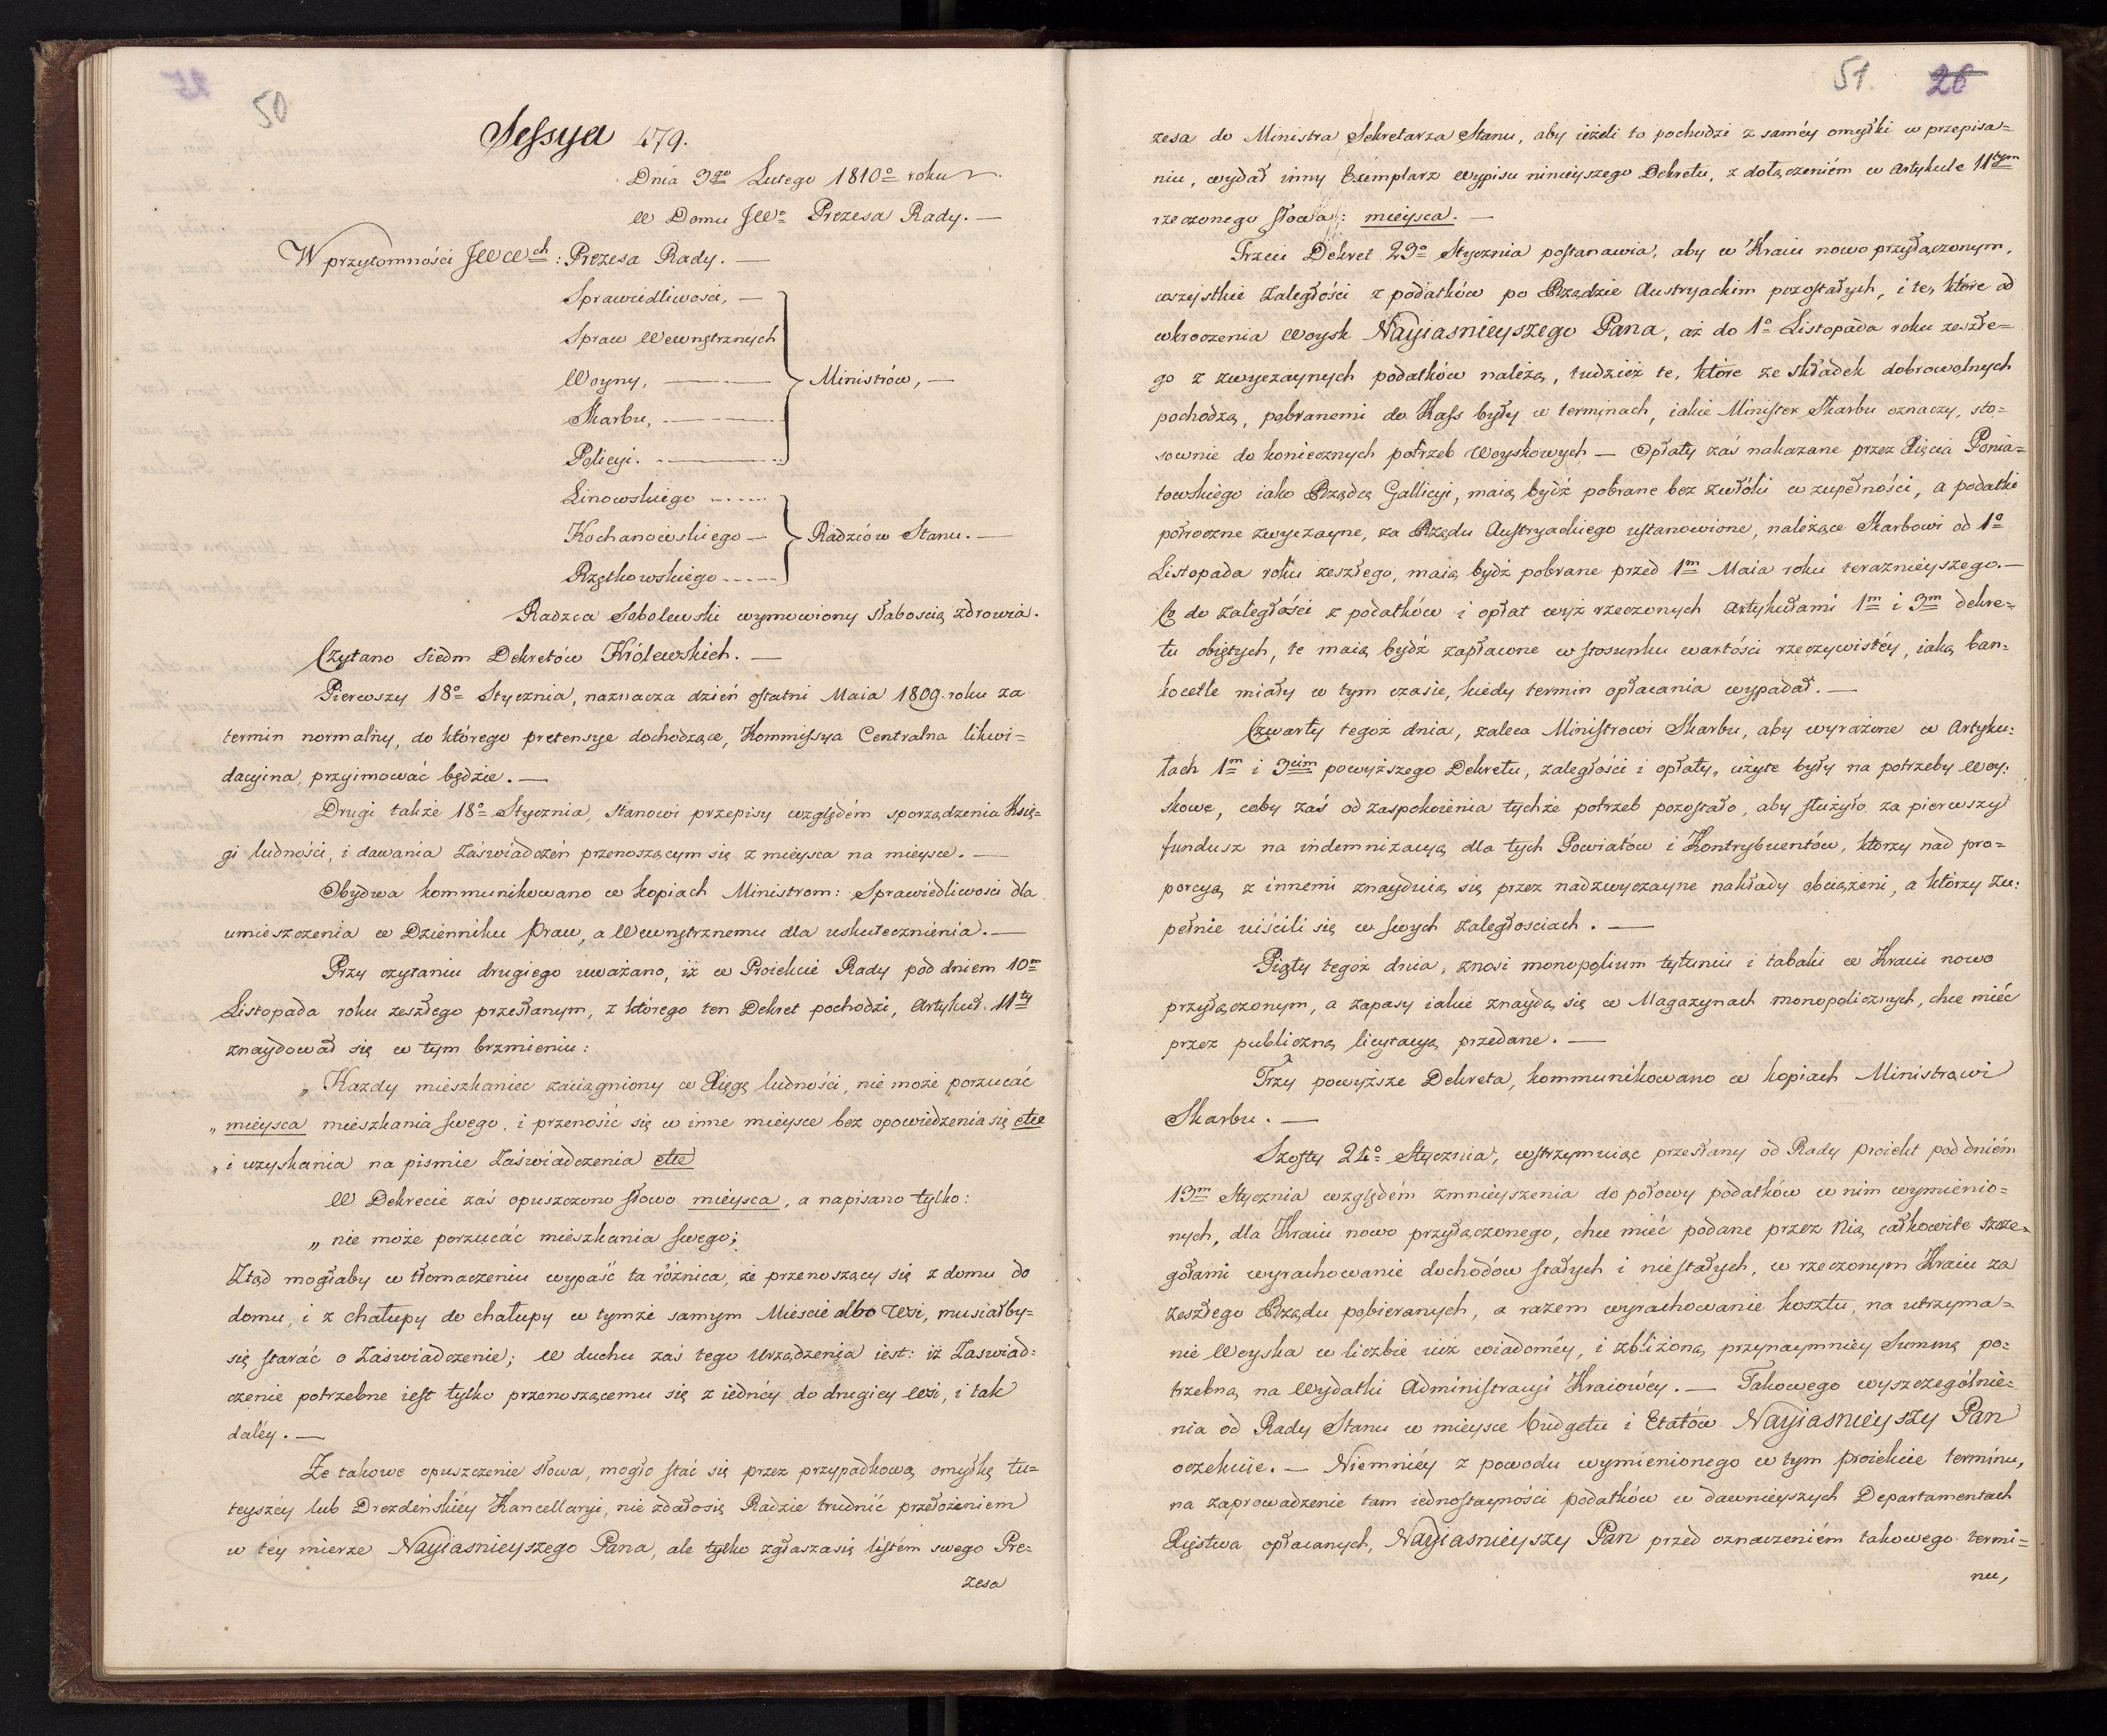 50
Sessya 479.
Dnia 3go Lutego 1810o roku
W Domu JWo Prezesa Rady. —
W przytomności JWWch: Prezesa Rady. —
Sprawiedliwości, —
Spraw Wewnętrznych
Woyny, — Ministrów, —
Skarbu, —
Policyi. —
Linowskiego
Kochanowskiego — Radzców Stanu. —
Rzętkowskiego
Radzca Sobolewski wymowiony słabością zdrowia.
Czytano siedm Dekretów Królewskich. —
Pierwszy 18o Stycznia, naznacza dzień ostatni Maia 1809. roku za
termin normalny, do którego pretensye dochodzące, Kommissya Centralna likwi=
dacyina, przyimować będzie. —
Drugi także 18o Stycznia, stanowi przepisy względém sporządzenia Księ=
gi ludności, i dawania zaświadczeń przenoszącym się z mieysca na mieysce. —
Obydwa kommunikowano w kopiach Ministrom: Sprawiedliwości dla
umieszczenia w Dzienniku Praw, a Wewnętrznemu dla uskutecznienia. —
Przy czytaniu drugiego uważano, iż w Proiekcie Rady pod dniem 10m
Listopada roku zeszłego przesłanym, z którego ten Dekret pochodzi, Artykuł 11ty
znaydował się w tym brzmieniu:
„Kazdy mieszkaniec zaciągniony w Xięgę ludności, nie może porzucać
„mieysca mieszkania swego, i przenosić się w inne mieysce bez opowiedzenia się etce
„i uzyskania na pismie Zaświadczenia etce
W Dekrecie zaś opuszczono słowo mieysca, a napisano tylko:
„nie może porzucać mieszkania swego;
Ztąd mogłaby w tłomaczeniu wypaść ta różnica, że przenoszący się z domu do
domu, i z chałupy do chałupy w tymże samym Mieście albo Wsi, musiałby=
się starać o Zaświadczenie; W duchu zaś tego Urządzenia iest: iż Zaswiad=
czenie potrzebne iest tylko przenoszącemu się z iednéy do drugiey Wsi, i tak
daléy. —
Że takowe opuszczenie słowa, mogło stać się przez przypadkową omyłkę tu=
teyszéy lub Drezdeńskiéy Kancellaryi, nie zdałosię Radzie trudnić przełożeniem
w téy mierze Nayiasnieyszego Pana, ale tylko zgłaszasię listém swego Pre=
zesa
51. 26
zesa do Ministra Sekretarza Stanu, aby ieżeli to pochodzi z saméy omyłki w przepisa=
niu, wydał inny Exemplarz wypisu ninieyszego Dekretu, z dołączeniém w Artykule 11tym
rzeczonego słowa: mieysca. —
Trzeci Dekret 23o Stycznia postanawia, aby w Kraiu nowo przyłączonym,
wszystkie Zaległości z podatków po Rządzie Austryackim pozostałych, i te, które od
wkroczenia Woysk Nayiasnieyszego Pana, aż do 1o Listopada roku zeszłe=
go z zwyczaynych podatków należą, tudzież te, które ze składek dobrowolnych
pochodzą, pobranemi do Kass były w terminach, iakie Minister Skarbu oznaczy, sto=
sownie do koniecznych potrzeb Woyskowych — Opłaty zaś nakazane przez Xięcia Ponia=
towskiego iako Rządcę Gallicyi, maią bydź pobrane bez zwłóki w zupełności, a podatki
półroczne zwyczayne, za Rządu Austryackiego ustanowione, należące Skarbowi od 1o
Listopada roku zeszłego, maią bydź pobrane przed 1m Maia roku teraznieyszego. —
Co do Zaległości z podatków i opłat wyż rzeczonych Artykułami 1m i 3m dekre=
tu obiętych, te maią bydź zapłacone w stosunku wartości rzeczywistéy, iaką ban=
kocetle miały w tym czasie, kiedy termin opłacania wypadał. —
Czwarty tegoż dnia, zaleca Ministrowi Skarbu, aby wyrażone w Artyku=
łach 1m i 3cim powyższego Dekretu, zaległości i opłaty, użyte były na potrzeby Woy=
skowe, coby zaś od zaspokoienia tychże potrzeb pozostało, aby służyło za pierwszy
fundusz na indemnizacyą dla tych Powiatów i Kontrybuentów, którzy nad pro=
porcyą z innemi znayduią się przez nadzwyczayne nakłady obciążeni, a którzy zu=
pełnie uiścili się w swych Zaległosciach. —
Piąty tegoż dnia, znosi monopolium tytuniu i tabaki w Kraiu nowo
przyłączonym, a zapasy iakie znaydą się w Magazynach monopolicznych, chce mieć
przez publiczną licytacyą przedane. —
Trzy powyższe Dekreta, kommunikowano w kopiach Ministrowi
Skarbu. —
Szosty 24o Stycznia, wstrzymuiąc przesłany od Rady proiekt pod dniém
13m Stycznia względém zmnieyszenia do połowy podatków w nim wymienio=
nych, dla Kraiu nowo przyłączonego, chce mieć podane przez Nią całkowite szcze=
gółami wyrachowanie dochodów stałych i niestałych, w rzeczonym Kraiu za
zeszłego Rządu pobieranych, a razem wyrachowanie kosztu, na utrzyma=
nie Woyska w liczbie iuż wiadoméy, i zbliżoną przynaymniéy Summę po=
trzebną na Wydatki Administracyi Kraiowéy. — Takowego wyszczególnie=
nia od Rady Stanu w mieysce budgetu i Etatów Nayiasnieyszy Pan
oczekuie. — Niemniéy z powodu wymienionego w tym proiekcie terminu,
na zaprowadzenie tam iednostayności podatków w dawnieyszych Departamentach
Xięstwa opłacanych, Nayiasnieyszy Pan przed oznaczeniém takowego termi=
nu,